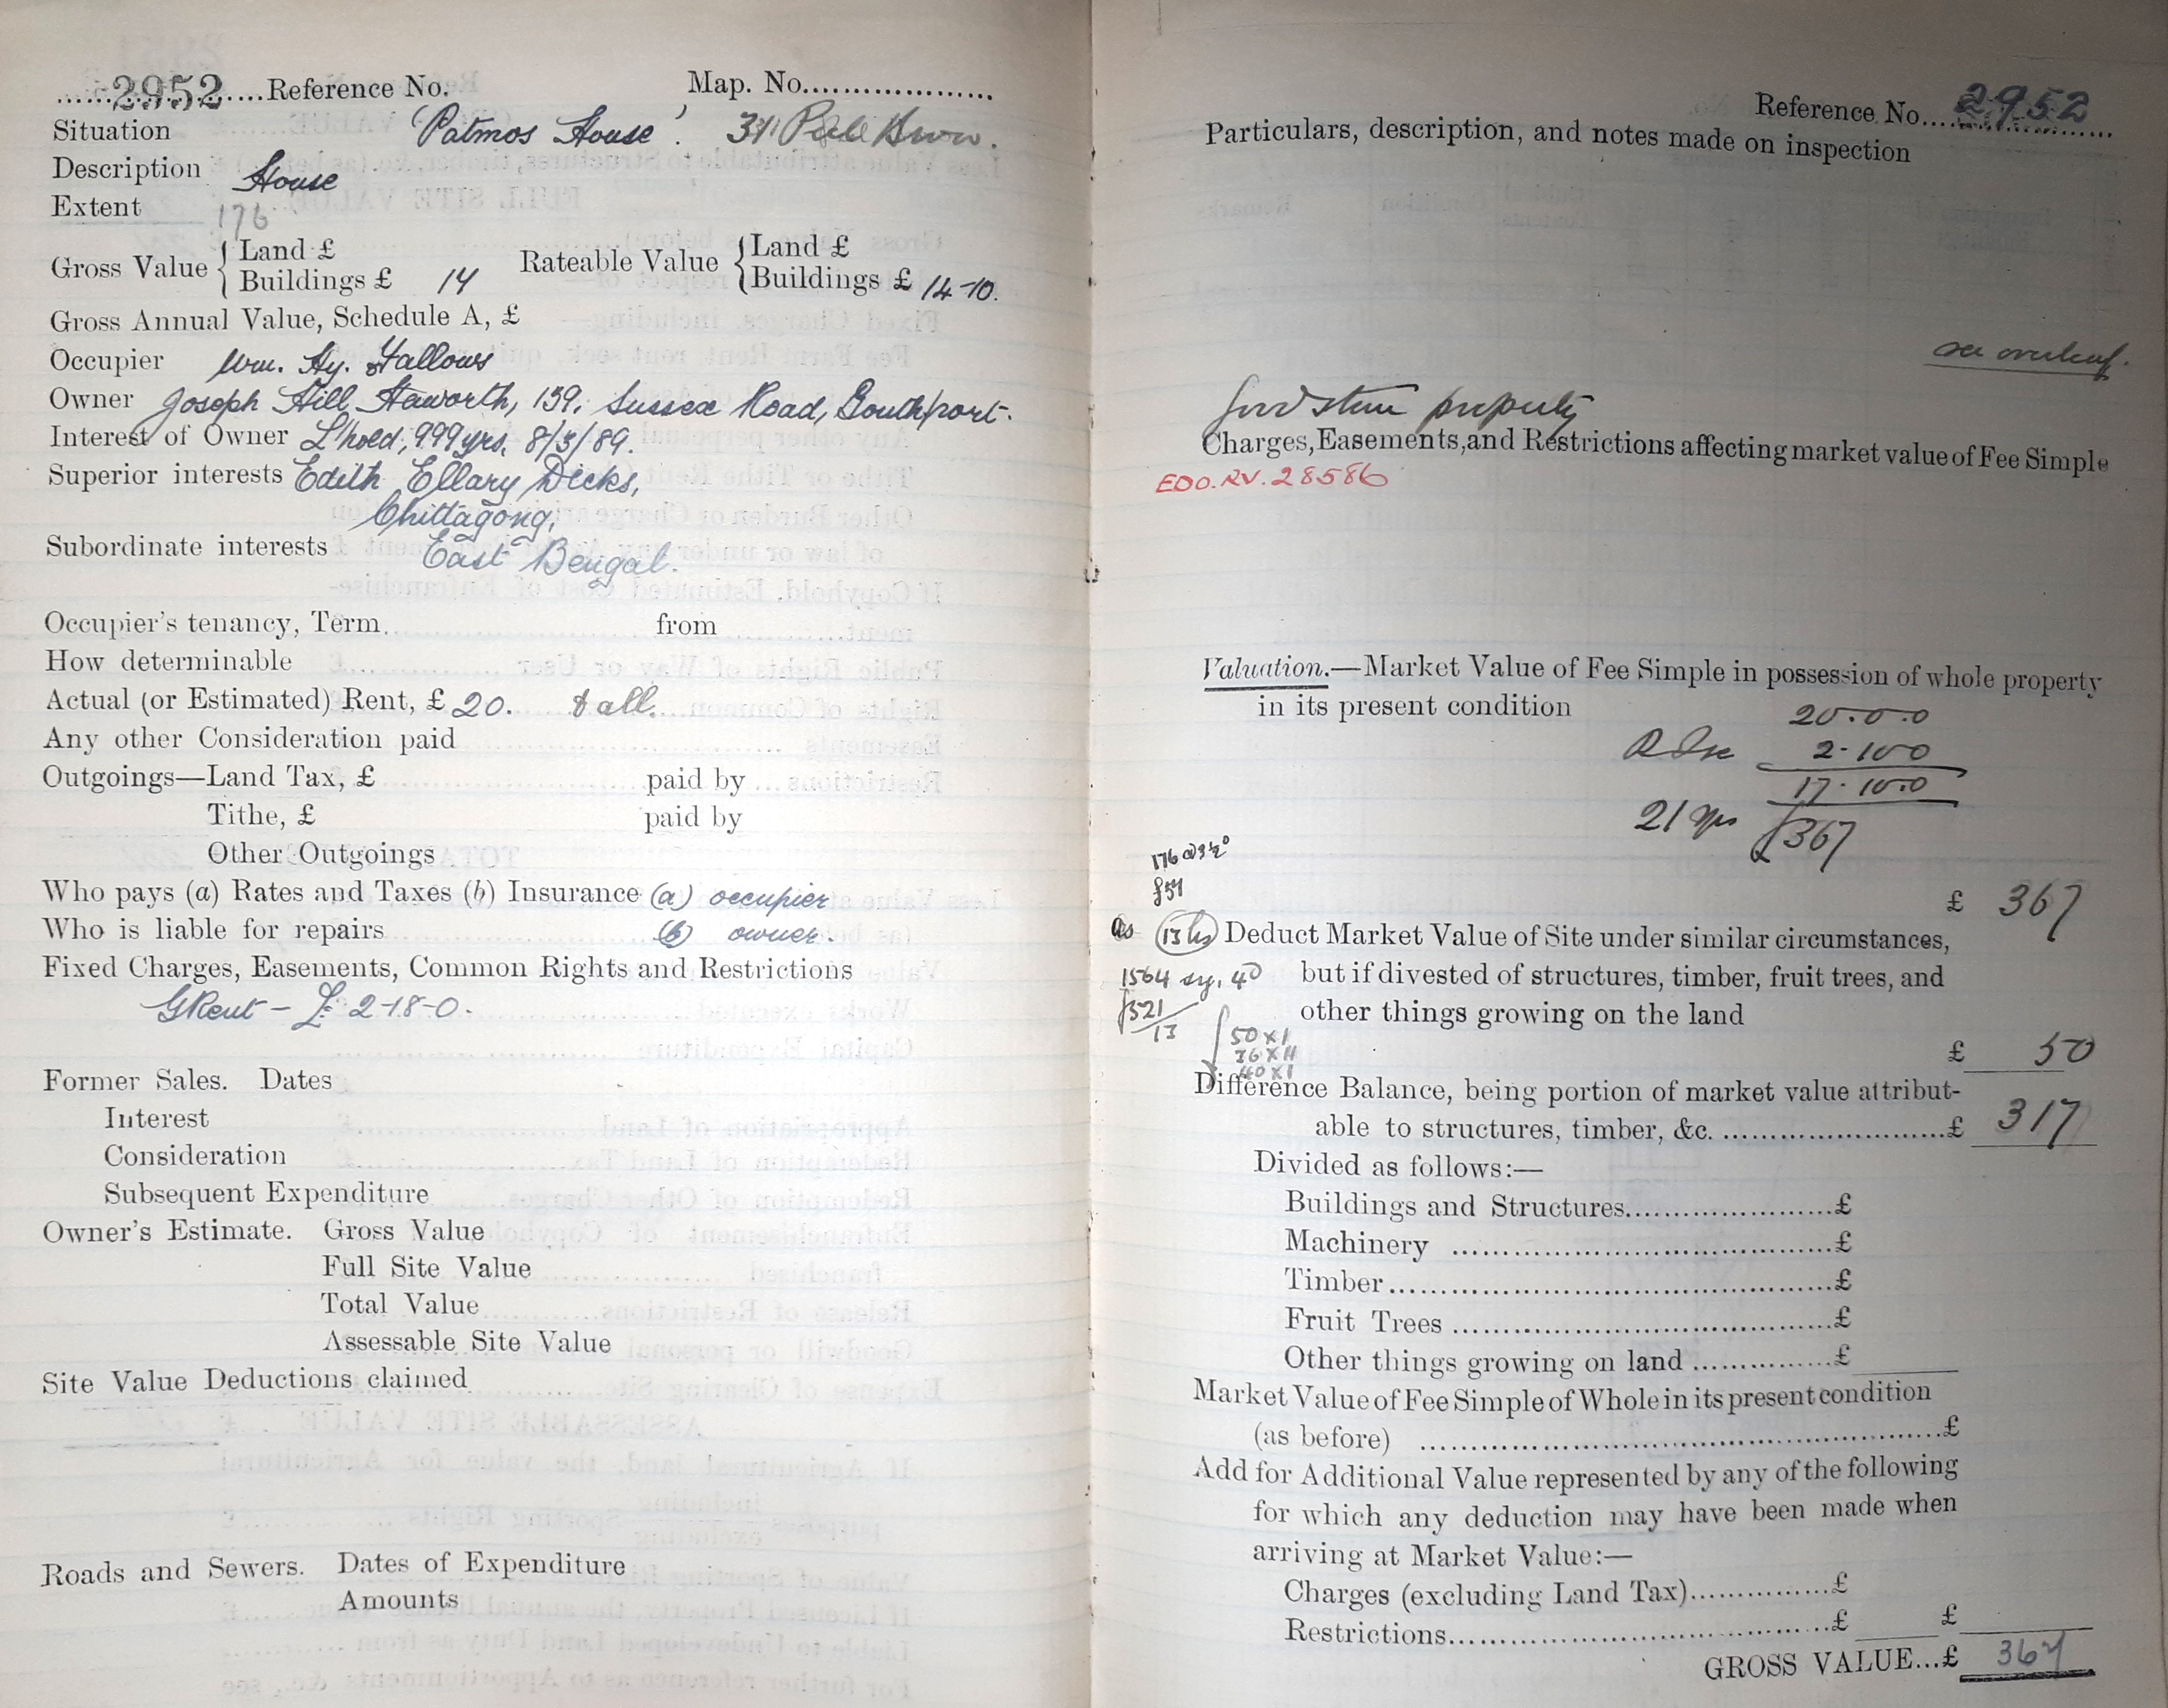 2952 Reference No. Map. No.
Situation 'Patmos House'. 311
Description House
Extent 176
Gross Value { Land £
Buildings £ 14
Rateable Value { Land £
Buildings £ 14-10.
Gross Annual Value, Schedule A, £
Occupier Wm. Hy. Fallows
Owner Joseph Hill Haworth, 139, Sussex Road, Southport.
Interest of Owner L'hold, 999 yrs, 8/3/89.
Superior interests Edith Ellary Dicks,
Chittagong,
Subordinate interests East Bengal.
Occupier's tenancy, Term from
How determinable
Actual (or Estimated) Rent, £ 20. & all.
Any other Consideration paid
Outgoings—Land Tax, £ paid by
Tithe, £ paid by
Other Outgoings
Who pays (a) Rates and Taxes (b) Insurance (a) occupier
Who is liable for repairs (b) owner.
Fixed Charges, Easements, Common Rights and Restrictions
GRent - £ 2-18-0.
Former Sales. Dates
Interest
Consideration
Subsequent Expenditure
Owner's Estimate. Gross Value
Full Site Value
Total Value
Assessable Site Value
Site Value Deductions claimed
Roads and Sewers. Dates of Expenditure
Amounts
Reference No. 2952
Particulars, description, and notes made on inspection
see overleaf.
Good stone property
Charges, Easements, and Restrictions affecting market value of Fee Simple
EDO.RV.28586
Valuation.—Market Value of Fee Simple in possession of whole property
in its present condition
20.0.0
2.10.0
17.10.0
21 yrs £367
176 @ 3½
£ 367
Deduct Market Value of Site under similar circumstances,
1564 sy. 4D but if divested of structures, timber, fruit trees, and
£521 other things growing on the land
13
50 x 1
36 x 11
40 x 1
£ 50
Difference Balance, being portion of market value attribut-
able to structures, timber, &c. £ 317
Divided as follows:—
Buildings and Structures £
Machinery £
Timber £
Fruit Trees £
Other things growing on land £
Market Value of Fee Simple of Whole in its present condition
(as before) £
Add for Additional Value represented by any of the following
for which any deduction may have been made when
arriving at Market Value:—
Charges (excluding Land Tax) £
Restrictions £ £
GROSS VALUE...£ 367